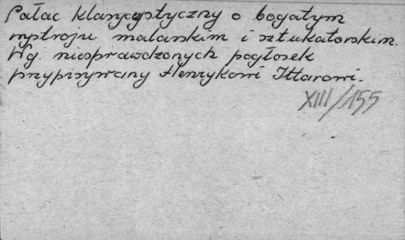 Pałac klasycystyczny o bogatym
wystroju malarskim i sztukatorskim.
Wg. niesprawdzonych pogłosek
przypisywany Henrykowi Ittarowi.
XIII/155